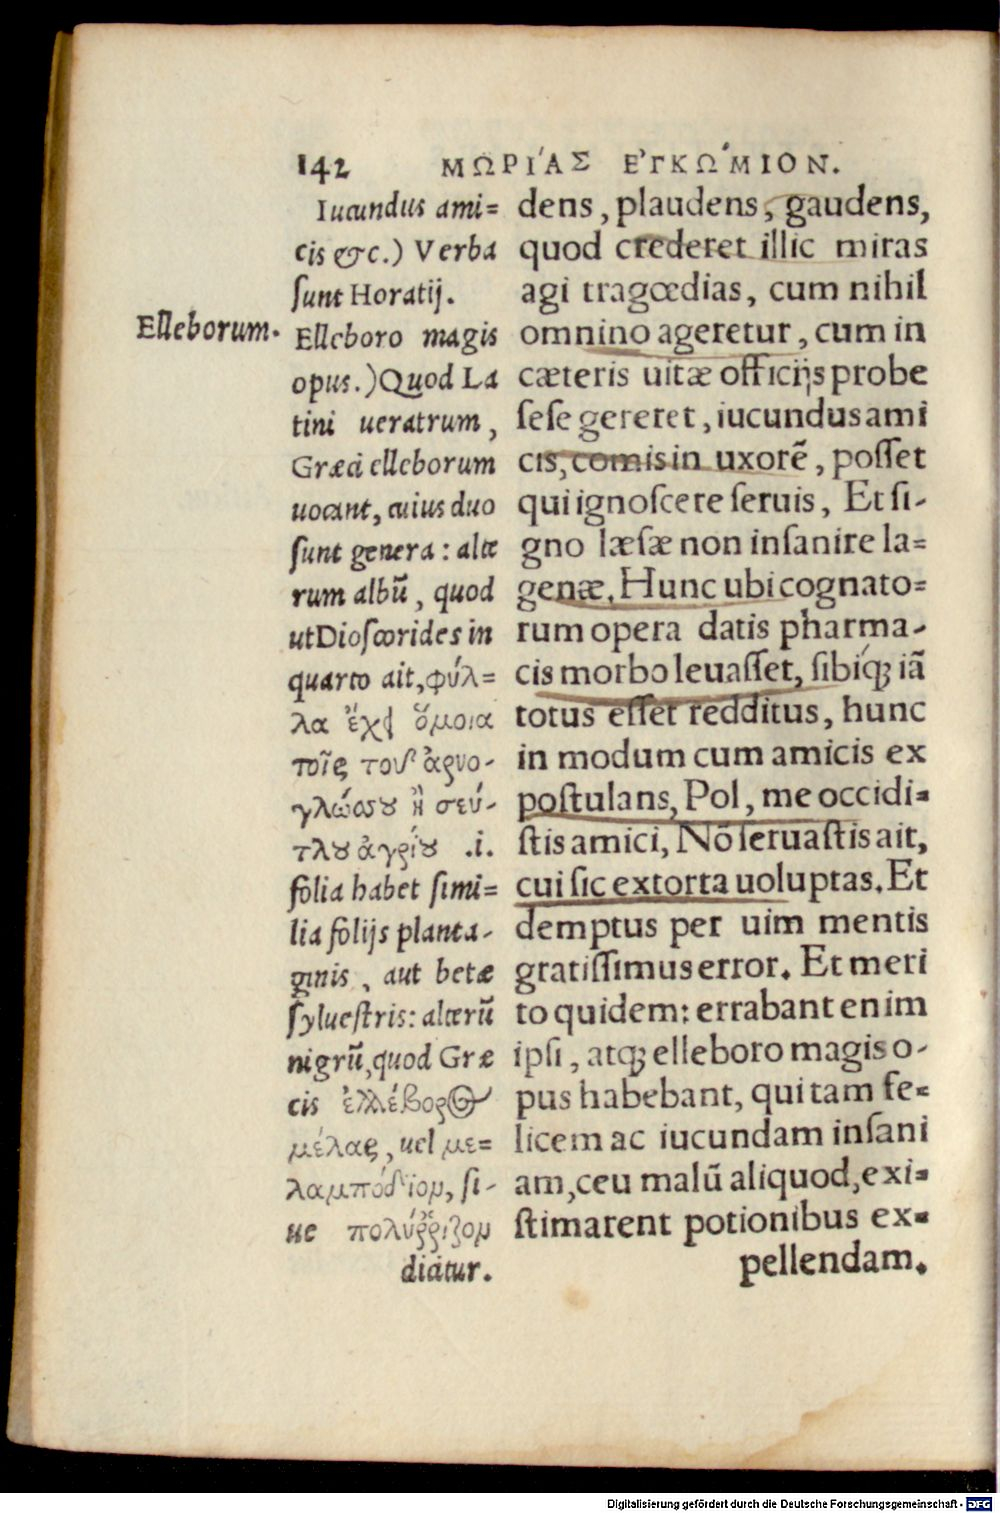 142 ΜΩΡΙΑΣ ΕΓΚΩΜΙΟΝ.
Elleborum.
Iucundus ami=
cis &c.) Verba
ſunt Horatij.
Elleboro magis
opus.) Quod La
tini ueratrum,
Græci elleborum
uocant, cuius duo
ſunt genera: alte
rum albũ, quod
ut Dioſcorides in
quarto ait, φύλ=
λα ἔχει ὅμοια
τοῖς τοῦ ἀρνο-
γλώσσου ἢ σεύ-
τλου ἀγρίου .i.
folia habet ſimi=
lia folijs planta-
ginis, aut betæ
ſylueſtris: alterũ
nigrũ, quod Græ
cis ἐλλέβορος
μέλας, uel με=
λαμπόδιον, ſi-
ue πολύῤῥιζον
dicitur.
dens, plaudens, gaudens,
quod crederet illic miras
agi tragœdias, cum nihil
omnino ageretur, cum in
cæteris uitæ officijs probe
ſeſe gereret, iucundus ami
cis, comis in uxorẽ, poſſet
qui ignoſcere ſeruis, Et ſi-
gno læſæ non inſanire la=
genæ. Hunc ubi cognato=
rum opera datis pharma-
cis morbo leuaſſet, ſibíq; iã
totus eſſet redditus, hunc
in modum cum amicis ex
poſtulans, Pol, me occidi=
ſtis amici, Nõ ſeruaſtis ait,
cui ſic extorta uoluptas. Et
demptus per uim mentis
gratiſſimus error. Et meri
to quidem: errabant enim
ipſi, atq; elleboro magis o-
pus habebant, qui tam fe=
licem ac iucundam inſani
am, ceu malũ aliquod, exi=
ſtimarent potionibus ex=
pellendam.
Digitalisierung gefördert durch die Deutsche Forschungsgemeinschaft - DFG